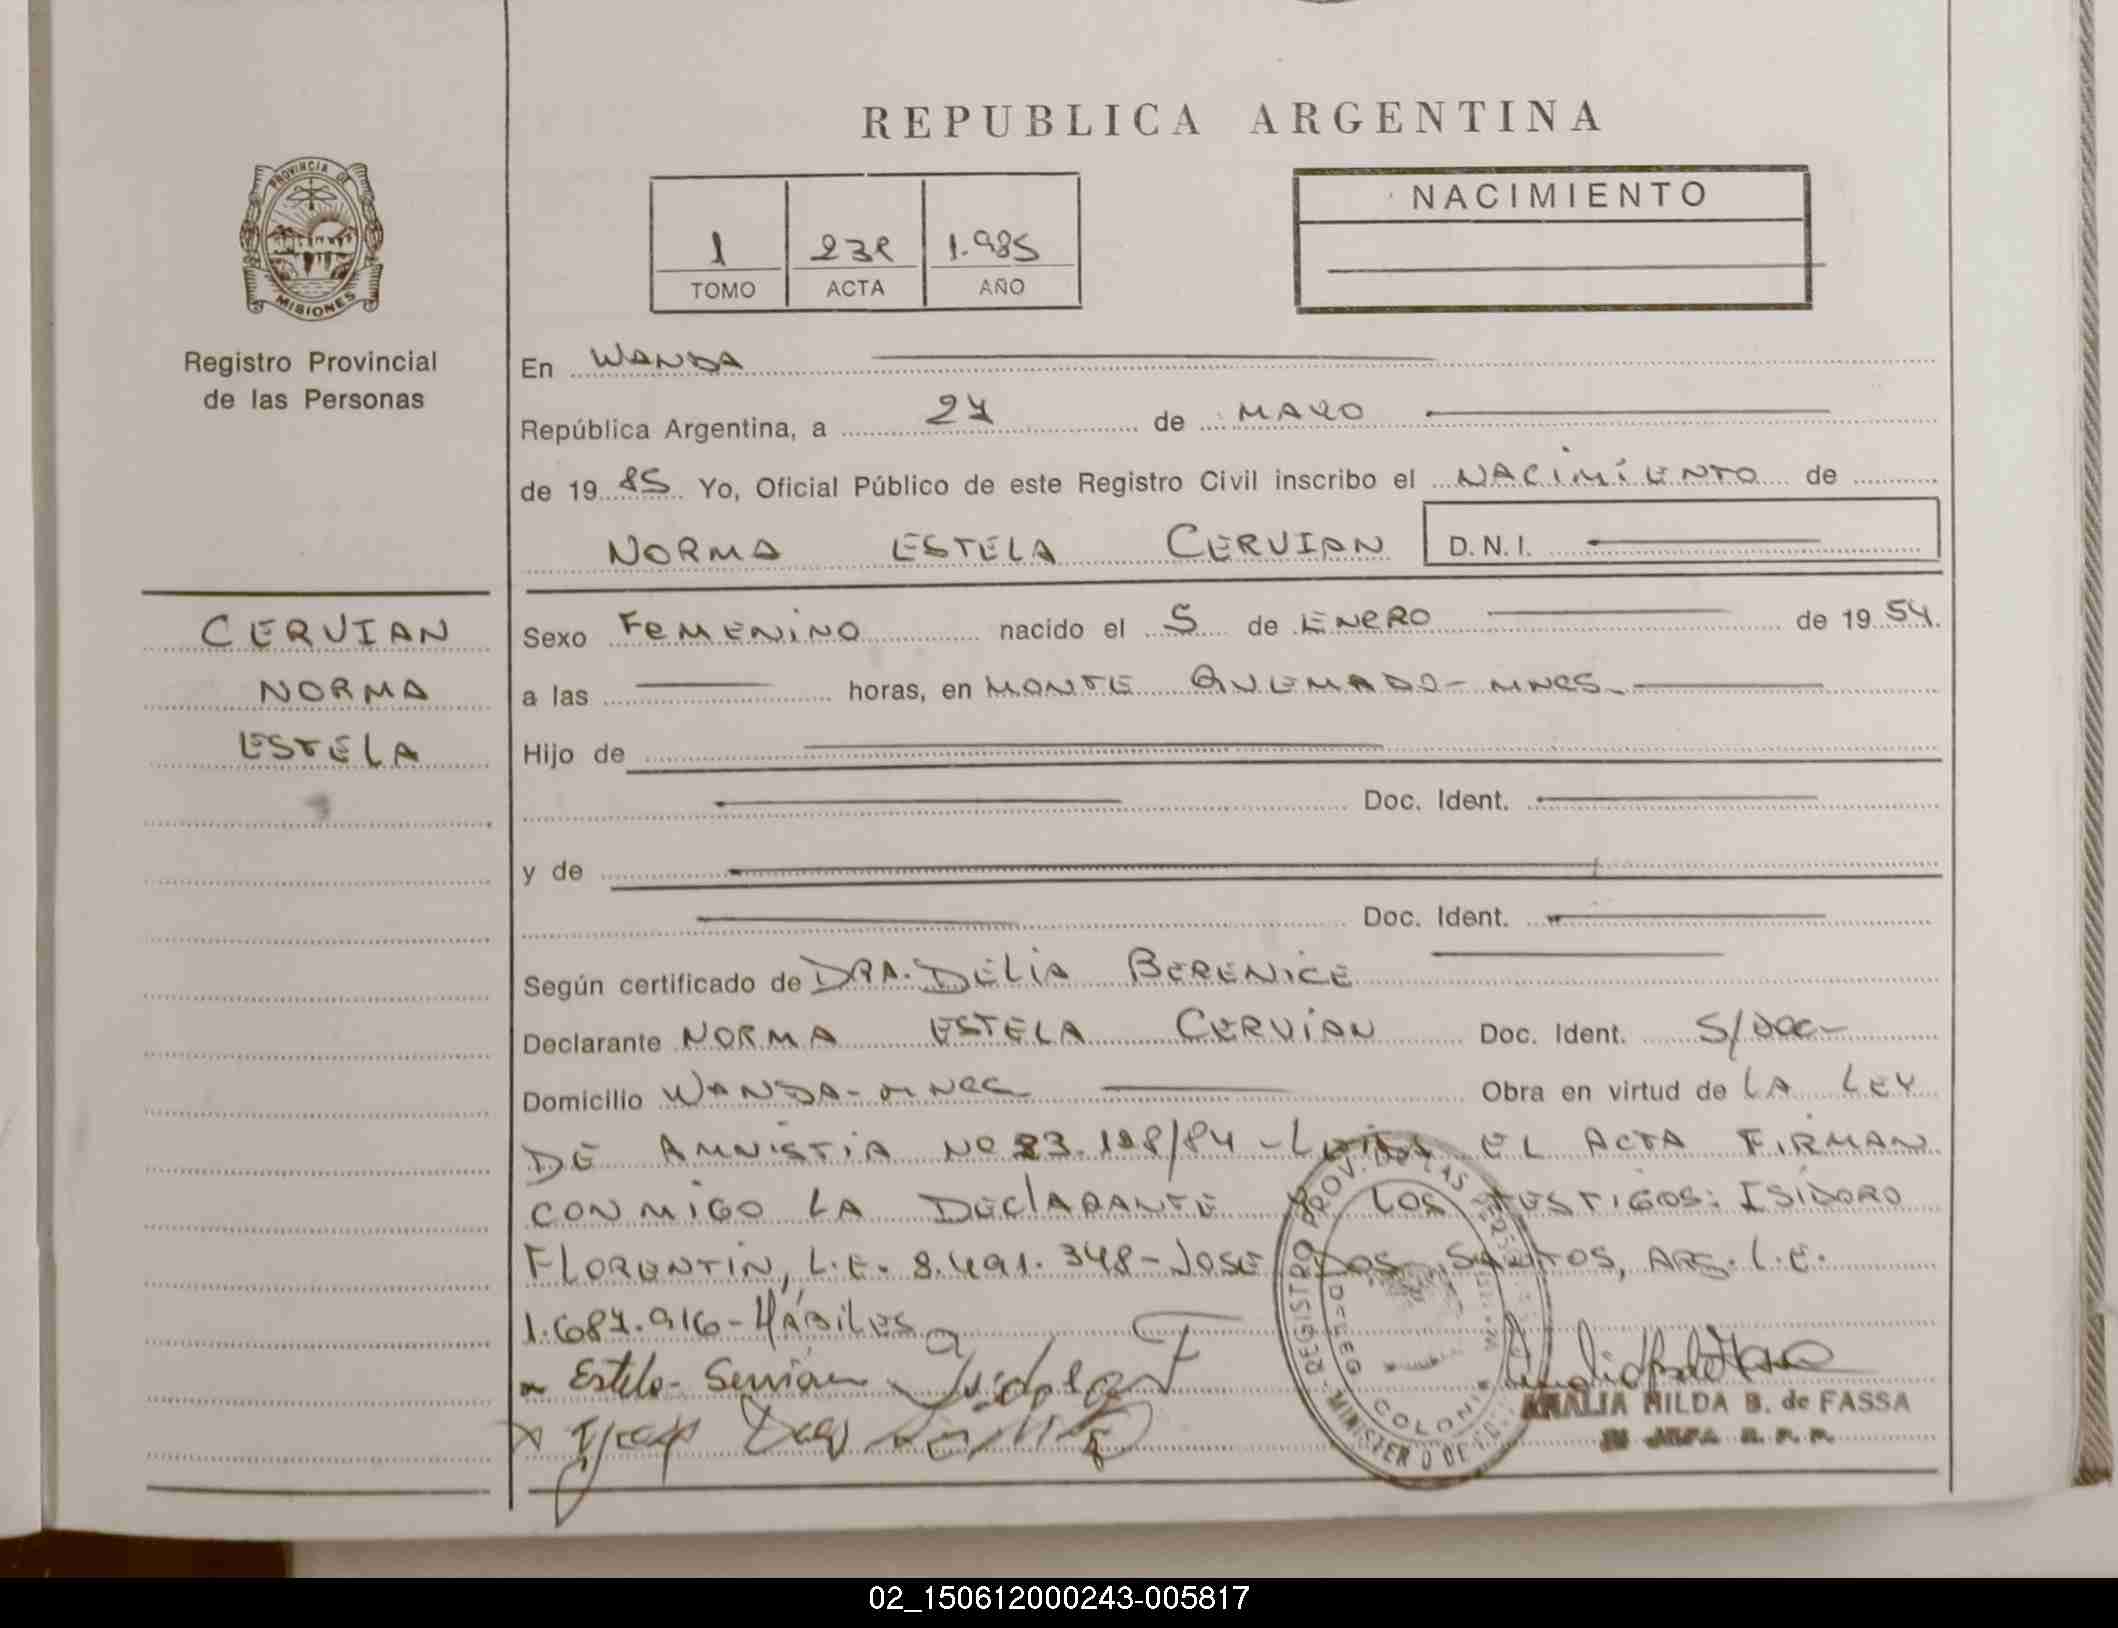 REPUBLICA ARGENTINA
PROVINCIA DE
MISIONES
Registro Provincial
de las Personas
1 232 1.985
TOMO ACTA AÑO
NACIMIENTO
En WANDA
República Argentina, a 27 de MAYO
de 1985 Yo, Oficial Público de este Registro Civil inscribo el NACIMIENTO de
NORMA ESTELA CERVIAN D.N.I.
CERVIAN
NORMA
ESTELA
Sexo FEMENINO nacido el 5 de ENERO de 1954.
a las horas, en MONTE QUEMADO - MNES.
Hijo de
Doc. Ident.
y de
Doc. Ident.
Según certificado de DRA. DELIA BERENICE
Declarante NORMA ESTELA CERVIAN Doc. Ident. S/DOC-
Domicilio WANDA - MNES Obra en virtud de LA LEY
DE AMNISTIA NO 23.128/84 - LEIDA EL ACTA FIRMAN
CONMIGO LA DECLARANTE Y LOS TESTIGOS: ISIDORO
FLORENTIN, L.E. 8.491.348 - JOSE DOS SANTOS, ARG. L.E.
1.687.916 - HÁBILES
Estela
REGISTRO PROV. DE LAS
MINISTERIO DE
COLONIA
AMALIA HILDA B. de FASSA
02_150612000243-005817